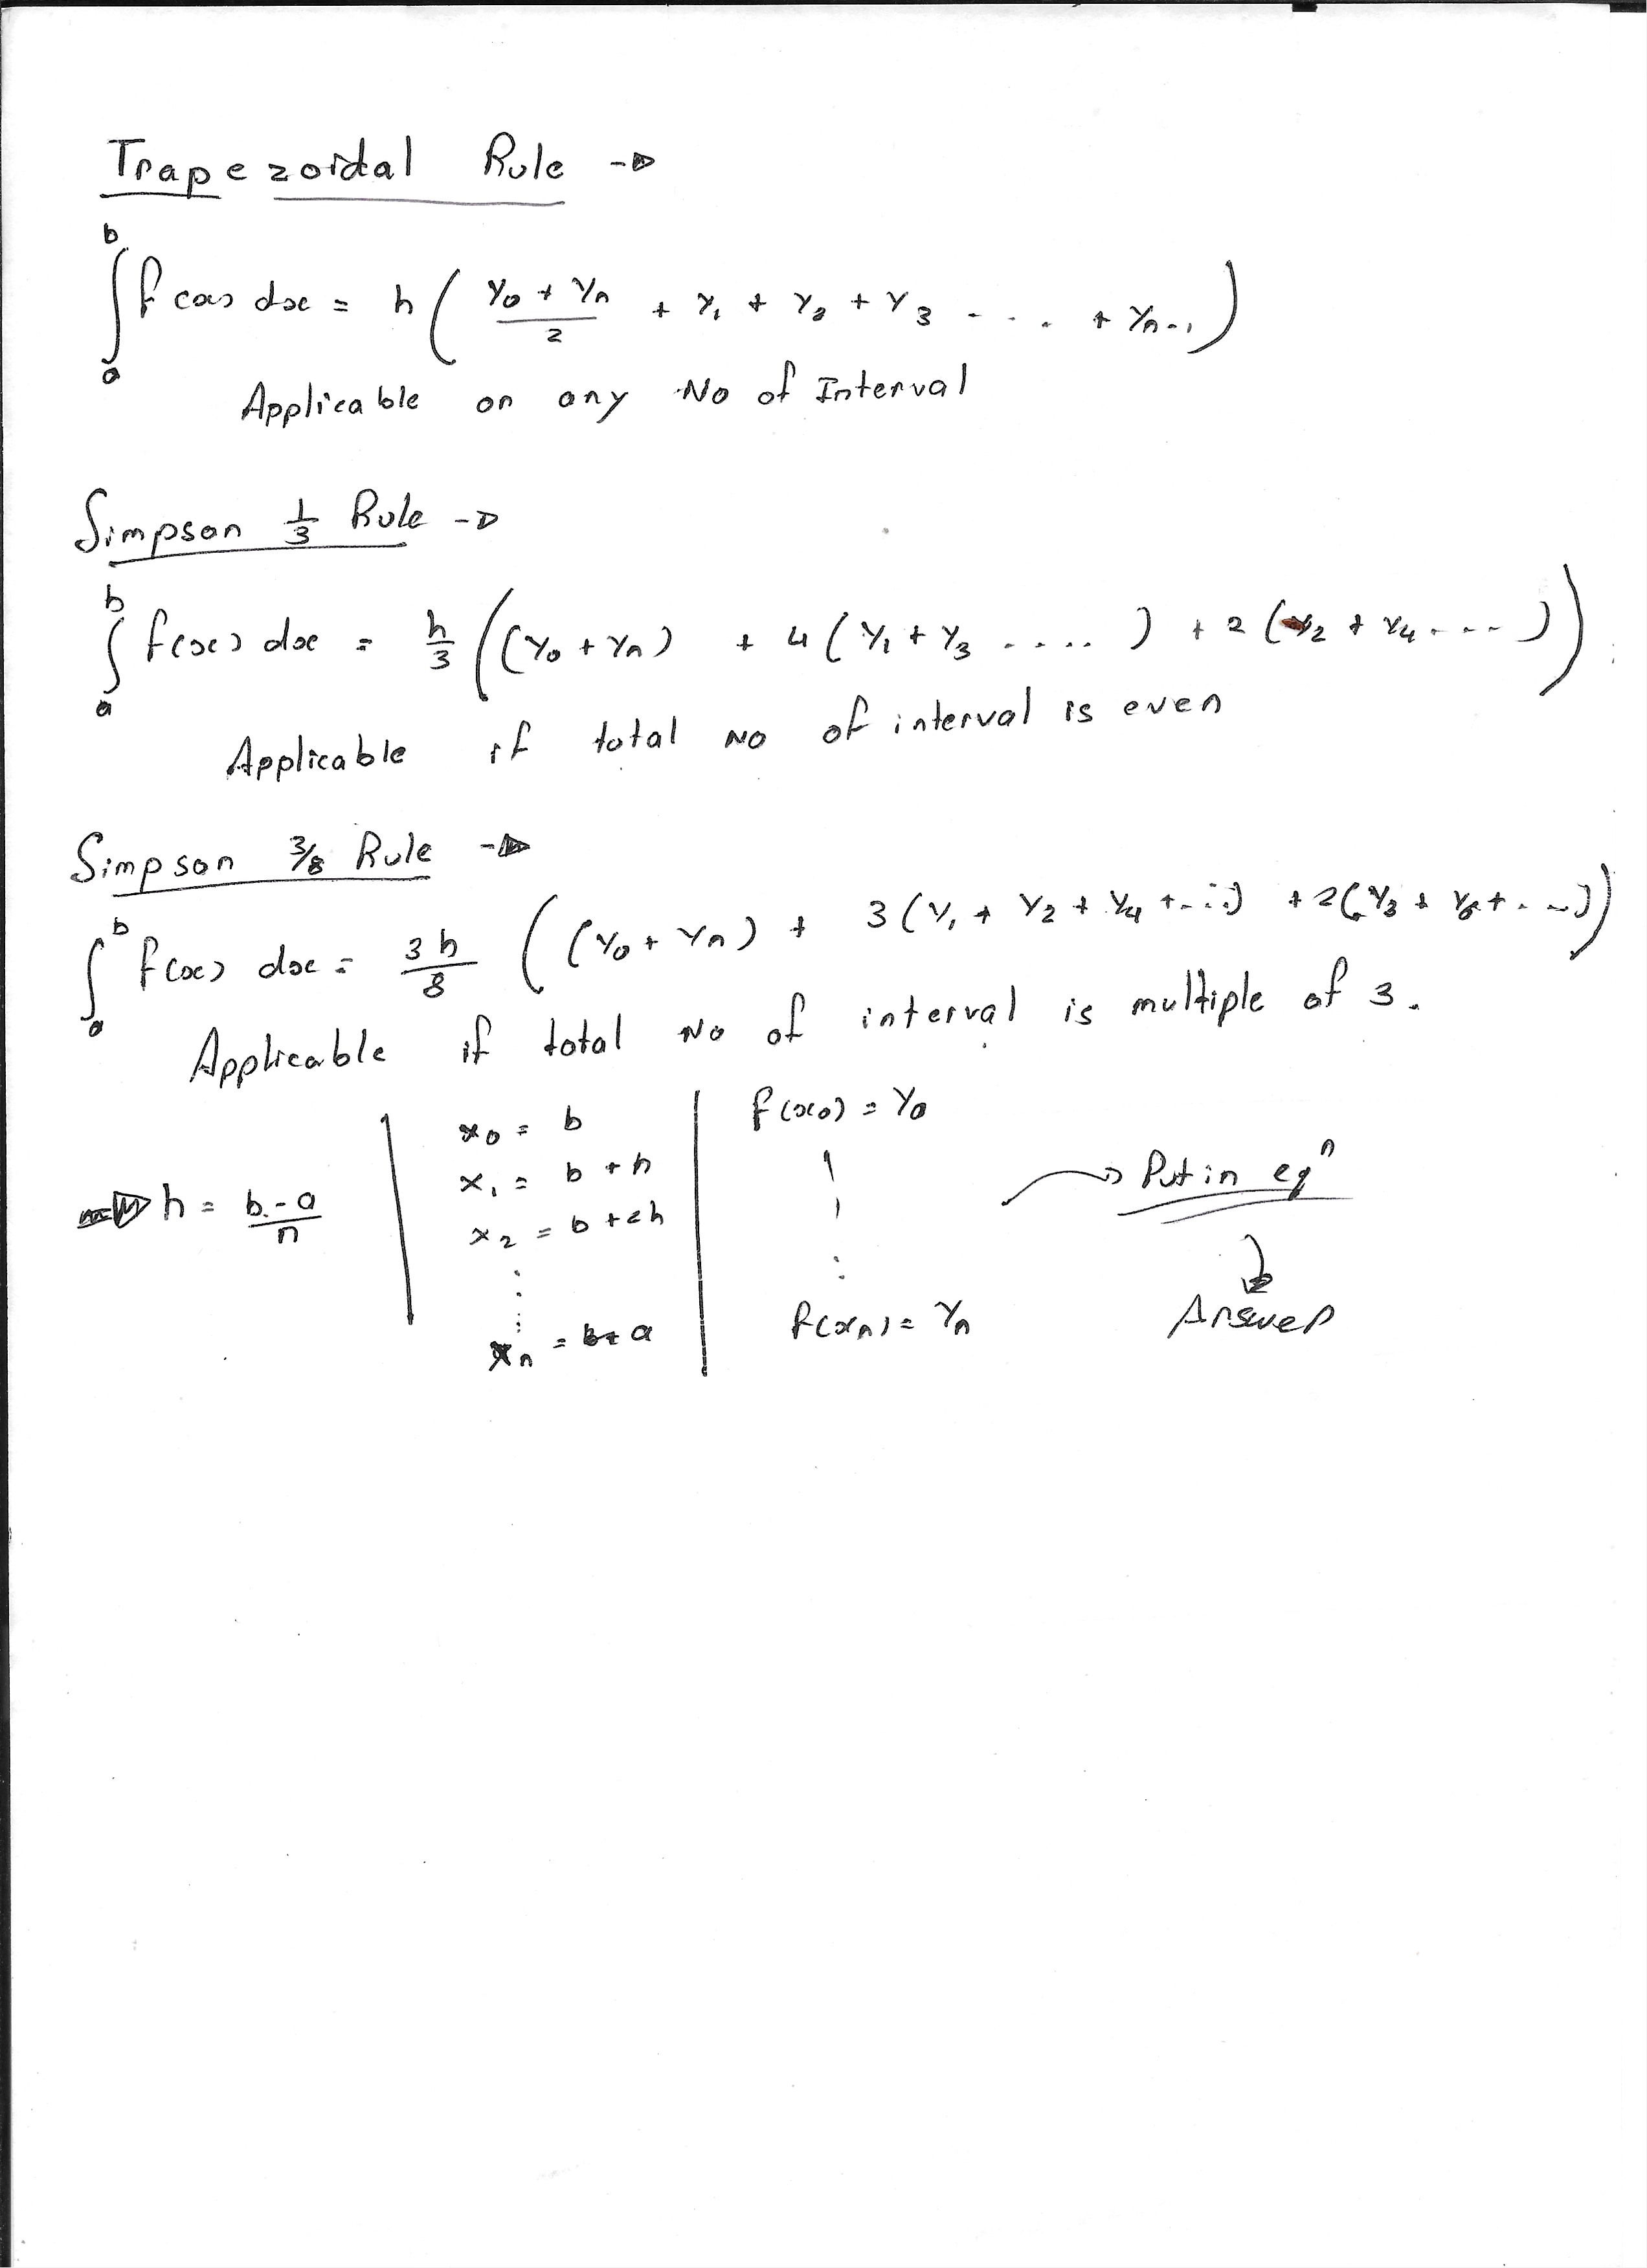 Trapezoidal Rule →
∫_a^b f(x) dx = h ( (y₀ + yₙ)/2 + y₁ + y₂ + y₃ . . . . + yₙ₋₁ )
Applicable on any No of Interval
Simpson 1/3 Rule →
∫_a^b f(x) dx = h/3 ( (y₀ + yₙ) + 4 ( y₁ + y₃ ..... ) + 2 ( y₂ + y₄ .... ) )
Applicable if total No of interval is even
Simpson 3/8 Rule →
∫_a^b f(x) dx = 3h/8 ( (y₀ + yₙ) + 3 ( y₁ + y₂ + y₄ + .... ) + 2 ( y₃ + y₆ + .... ) )
Applicable if total No of interval is multiple of 3.
⇒ h = (b - a)/n
x₀ = b
x₁ = b + h
x₂ = b + 2h
⋮
xₙ = a
f(x₀) = y₀
⋮
f(xₙ) = yₙ
→ Put in eqⁿ
↓
Answer